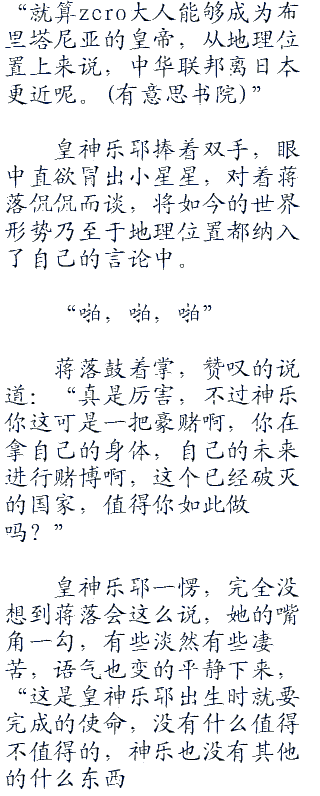 “就算zcro大人能够成为布
里塔尼亚的皇帝，从地理位
置上来说，中华联邦离日本
更近呢。(有意思书院)”
皇神乐耶捧着双手，眼
中直欲冒出小星星，对着蒋
落侃侃而谈，将如今的世界
形势乃至于地理位置都纳入
了自己的言论中。
“啪，啪，啪”
蒋落鼓着掌，赞叹的说
道：“真是厉害，不过神乐
你这可是一把豪赌啊，你在
拿自己的身体，自己的未来
进行赌博啊，这个已经破灭
的国家，值得你如此做
吗？”
皇神乐耶一愣，完全没
想到蒋落会这么说，她的嘴
角一勾，有些淡然有些凄
苦，语气也变的平静下来，
“这是皇神乐耶出生时就要
完成的使命，没有什么值得
不值得的，神乐也没有其他
的什么东西